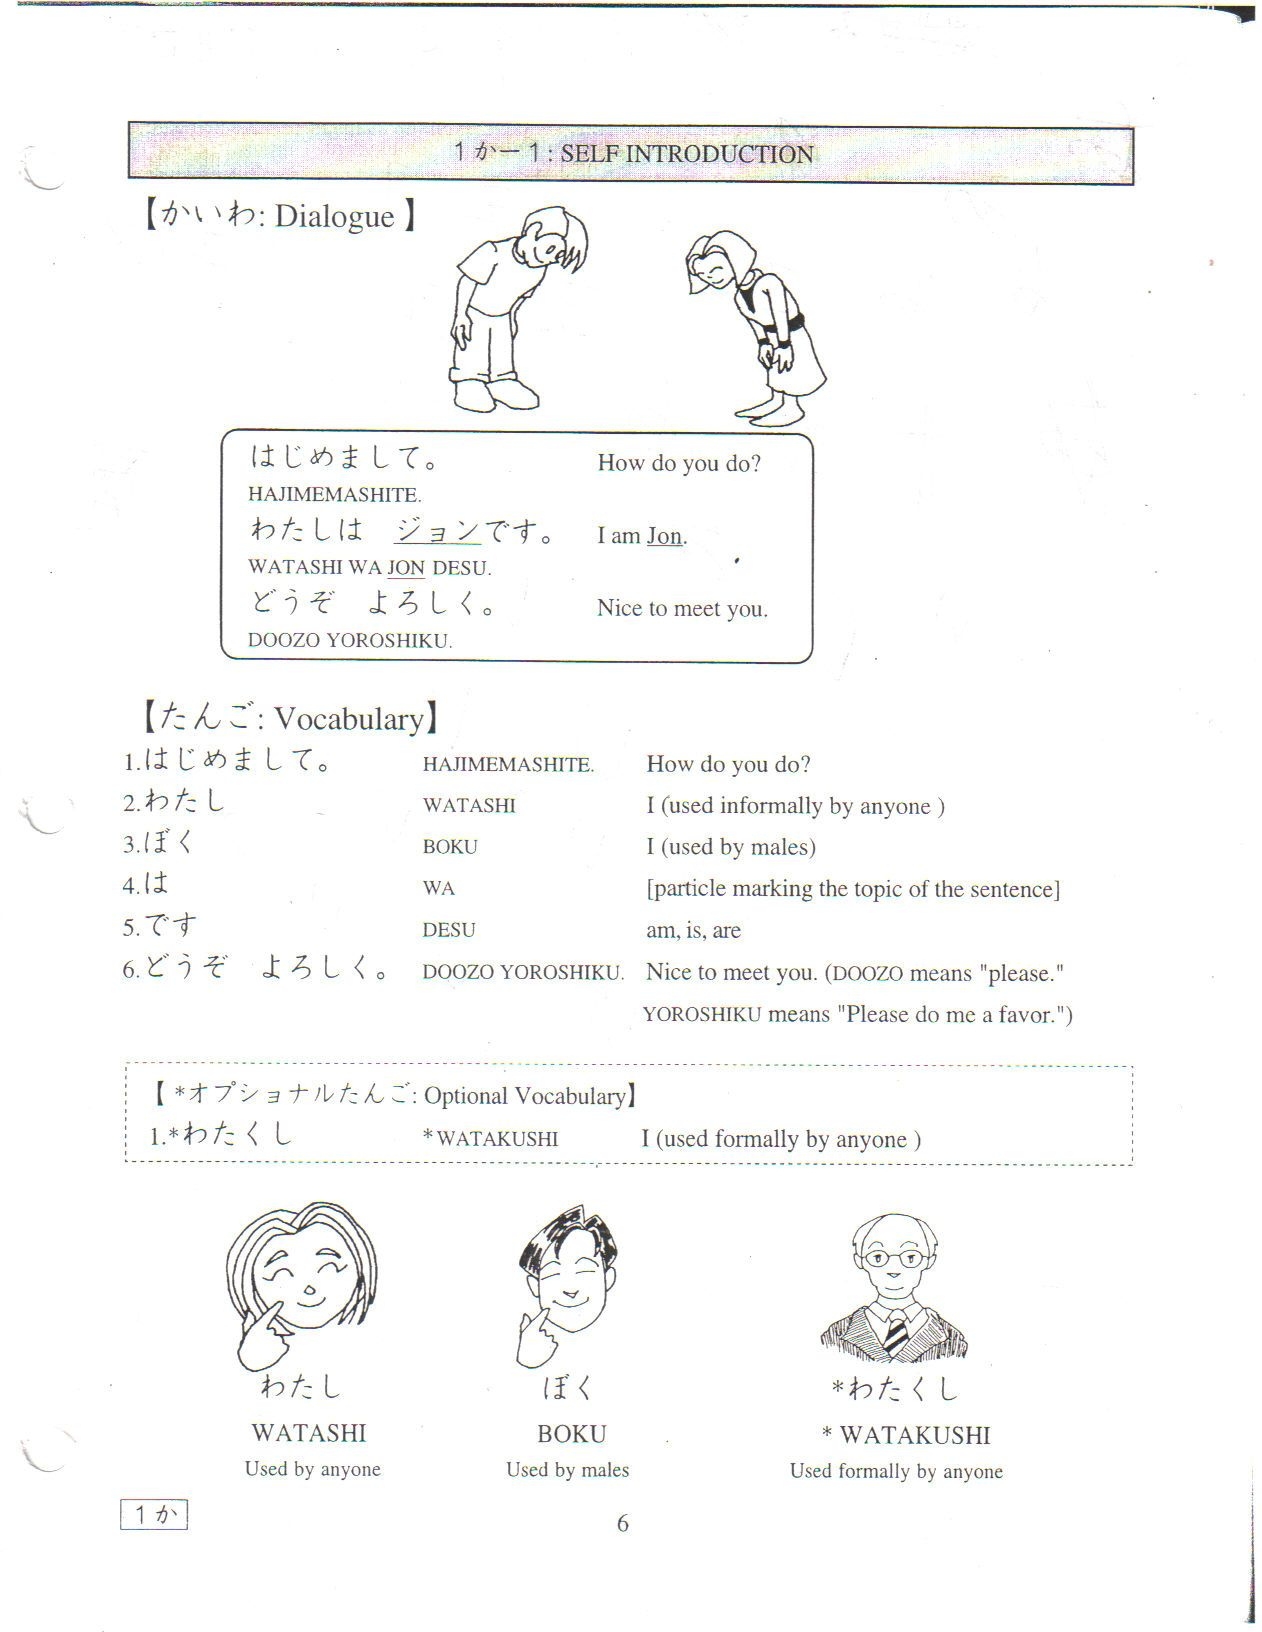 1か－1: SELF INTRODUCTION
【かいわ: Dialogue】
はじめまして。 How do you do?
HAJIMEMASHITE.
わたしは　ジョンです。 I am Jon.
WATASHI WA JON DESU.
どうぞ　よろしく。 Nice to meet you.
DOOZO YOROSHIKU.
【たんご: Vocabulary】
1.はじめまして。 HAJIMEMASHITE. How do you do?
2.わたし WATASHI I (used informally by anyone )
3.ぼく BOKU I (used by males)
4.は WA [particle marking the topic of the sentence]
5.です DESU am, is, are
6.どうぞ　よろしく。 DOOZO YOROSHIKU. Nice to meet you. (DOOZO means "please."
YOROSHIKU means "Please do me a favor.")
【 *オプショナルたんご: Optional Vocabulary】
1.*わたくし *WATAKUSHI I (used formally by anyone )
わたし ぼく *わたくし
WATASHI BOKU * WATAKUSHI
Used by anyone Used by males Used formally by anyone
1か 6